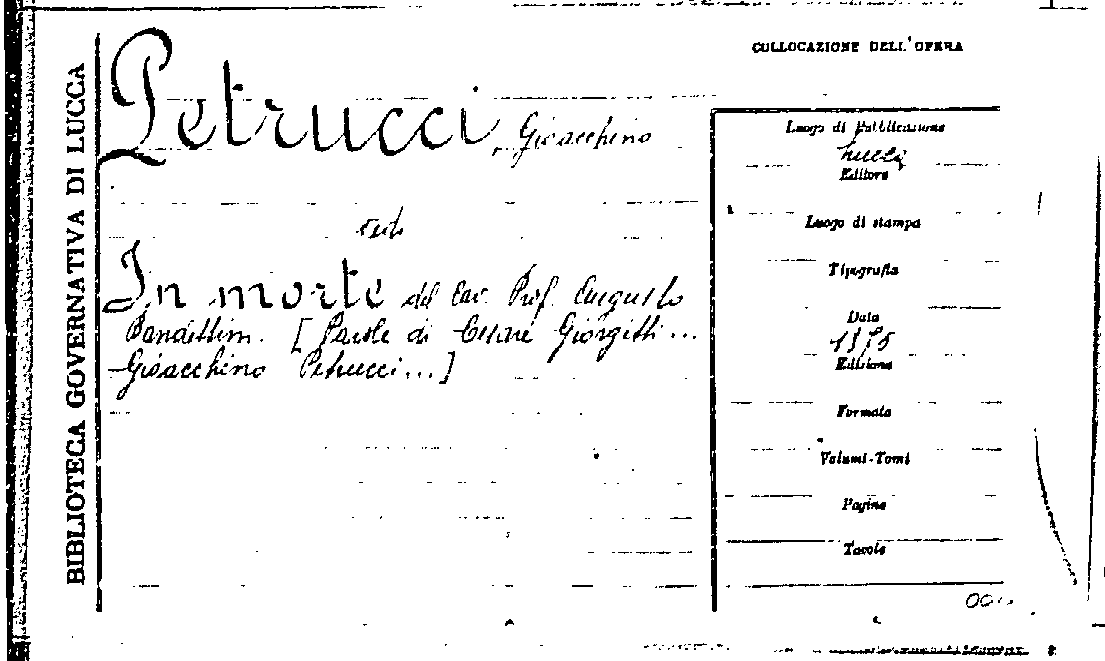 BIBLIOTECA GOVERNATIVA DI LUCCA
COLLOCAZIONE DELL'OPERA
Petrucci, Gioacchino
vedi
In morte del Cav. Prof. Augusto
Pandettini. [Parole di Cesare Giorgitti...
Gioacchino Petrucci...]
Luogo di Pubblicazione
Lucca
Editore
Luogo di stampa
Tipografia
Data
Edizione
Formato
Volumi-Tomi
Pagine
Tavole